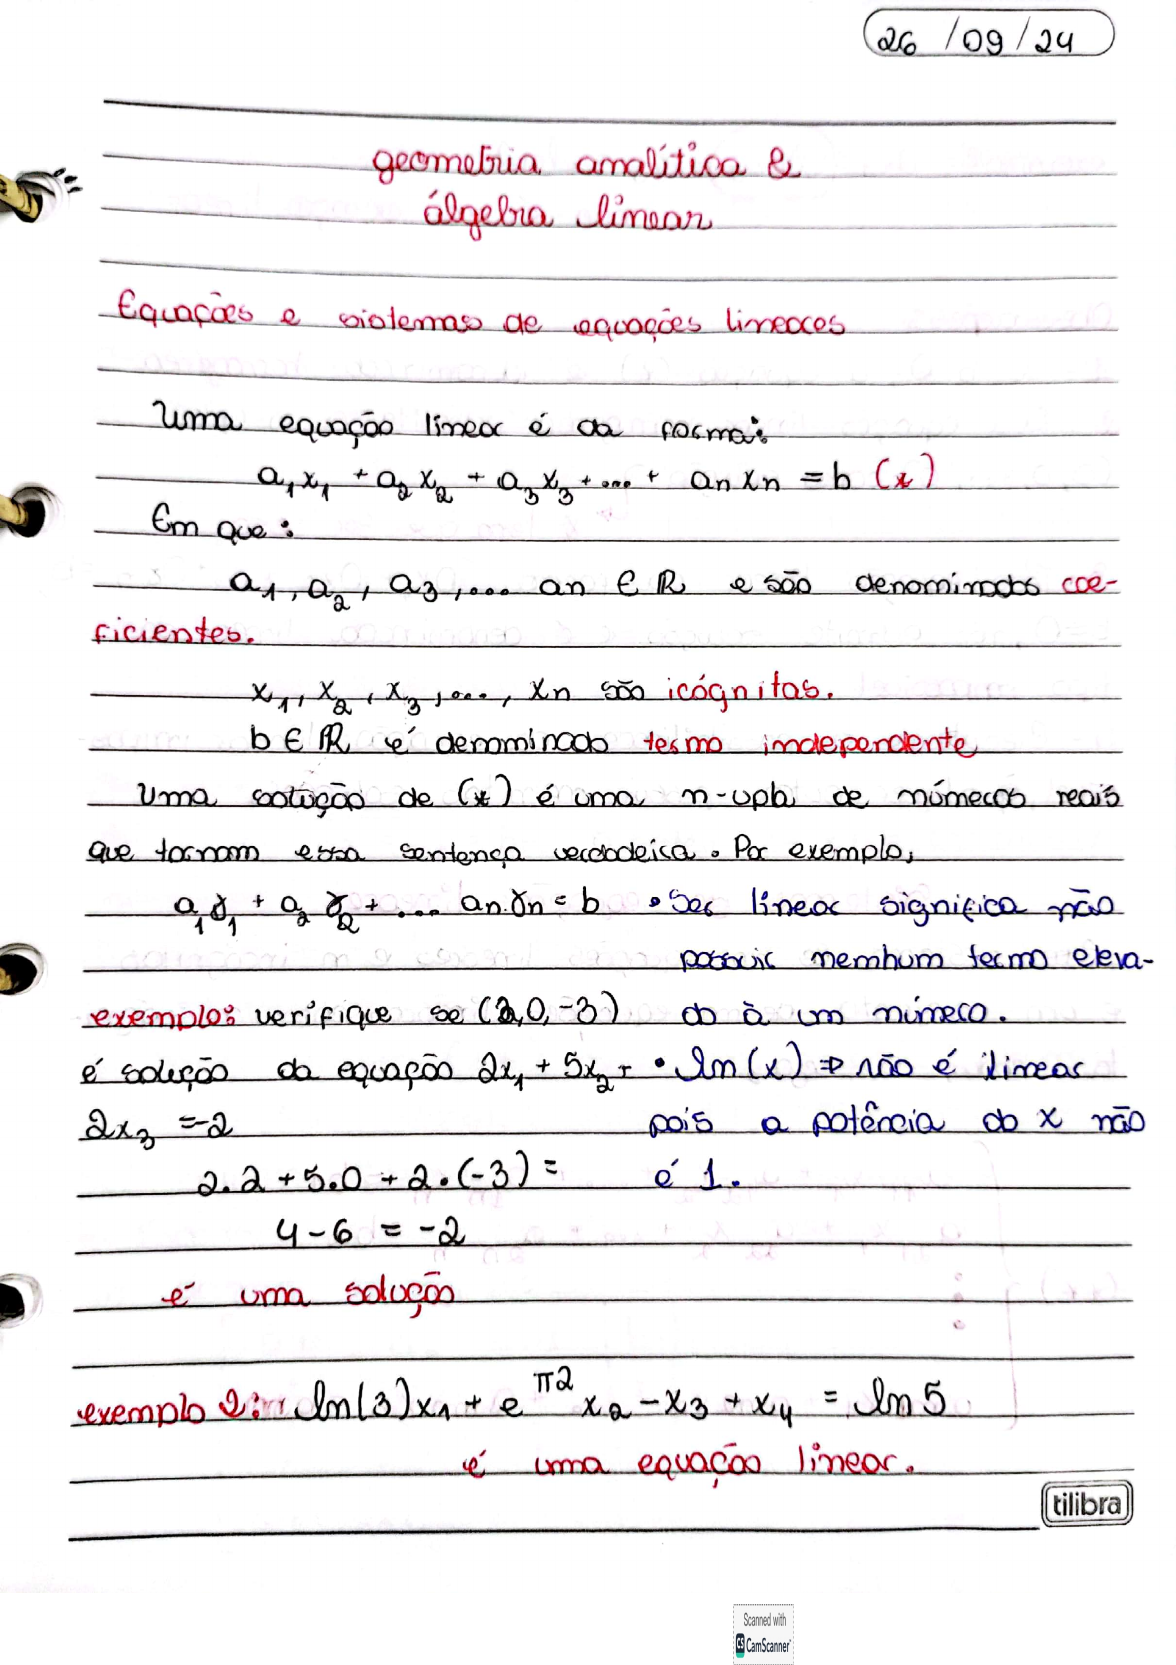 26/09/24
geometria analítica &
álgebra linear
Equações e sistemas de equações lineares
Uma equação linear é da forma:
a₁x₁ + a₂x₂ + a₃x₃ + ... + anxn = b (*)
Em que:
a₁, a₂, a₃, ... an ∈ ℝ e são denominados coe-
ficientes.
x₁, x₂, x₃, ..., xn são icógnitas.
b ∈ ℝ é denominado termo independente
Uma solução de (*) é uma n-upla de números reais
que tornam essa sentença verdadeira. Por exemplo,
a₁γ₁ + a₂γ₂ + ... an.γn = b
• Ser linear significa não
possuir nenhum termo eleva-
do à um número.
exemplo: verifique se (2,0,-3)
é solução da equação 2x₁ + 5x₂ +
2x₃ = -2
• ln(x) ⇒ não é linear
pois a potência do x não
é 1.
2.2 + 5.0 + 2.(-3) =
4 - 6 = -2
é uma solução
exemplo 2: ln(3)x₁ + e^π2 x₂ - x₃ + x₄ = ln 5
é uma equação linear.
tilibra
Scanned with
CS CamScanner